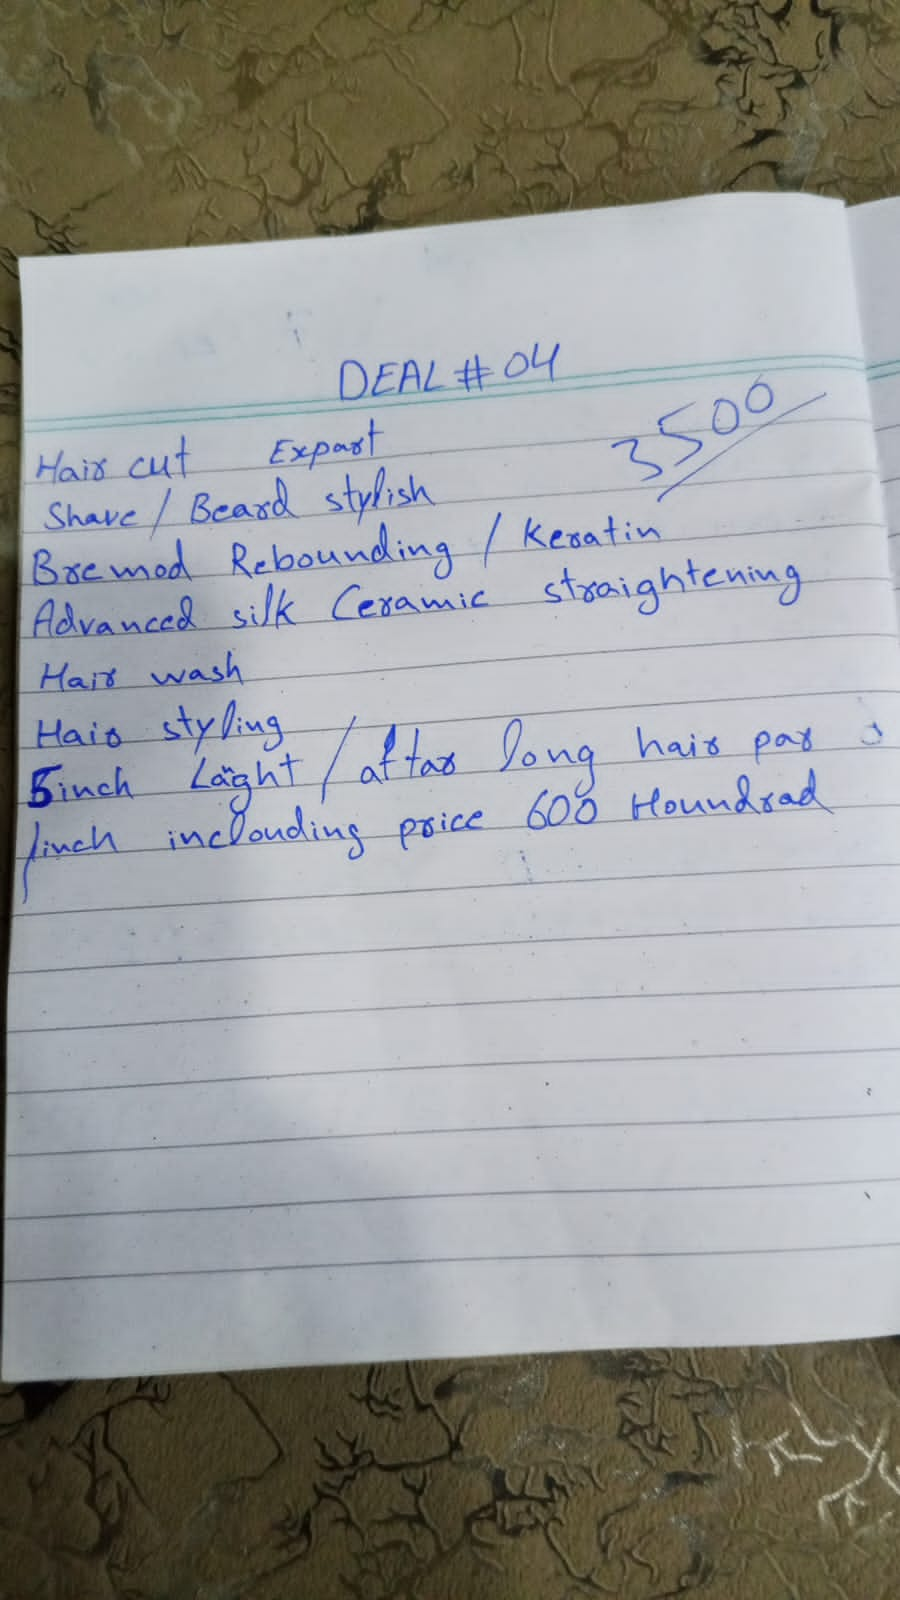 DEAL # 04
3500
Hair cut Expart
Shave / Beard stylish
Bremod Rebounding / Keratin
Advanced silk Ceramic straightening
Hair wash
Hair styling
5inch Laght / aftar long hair par
1inch inclouding price 600 Houndrad